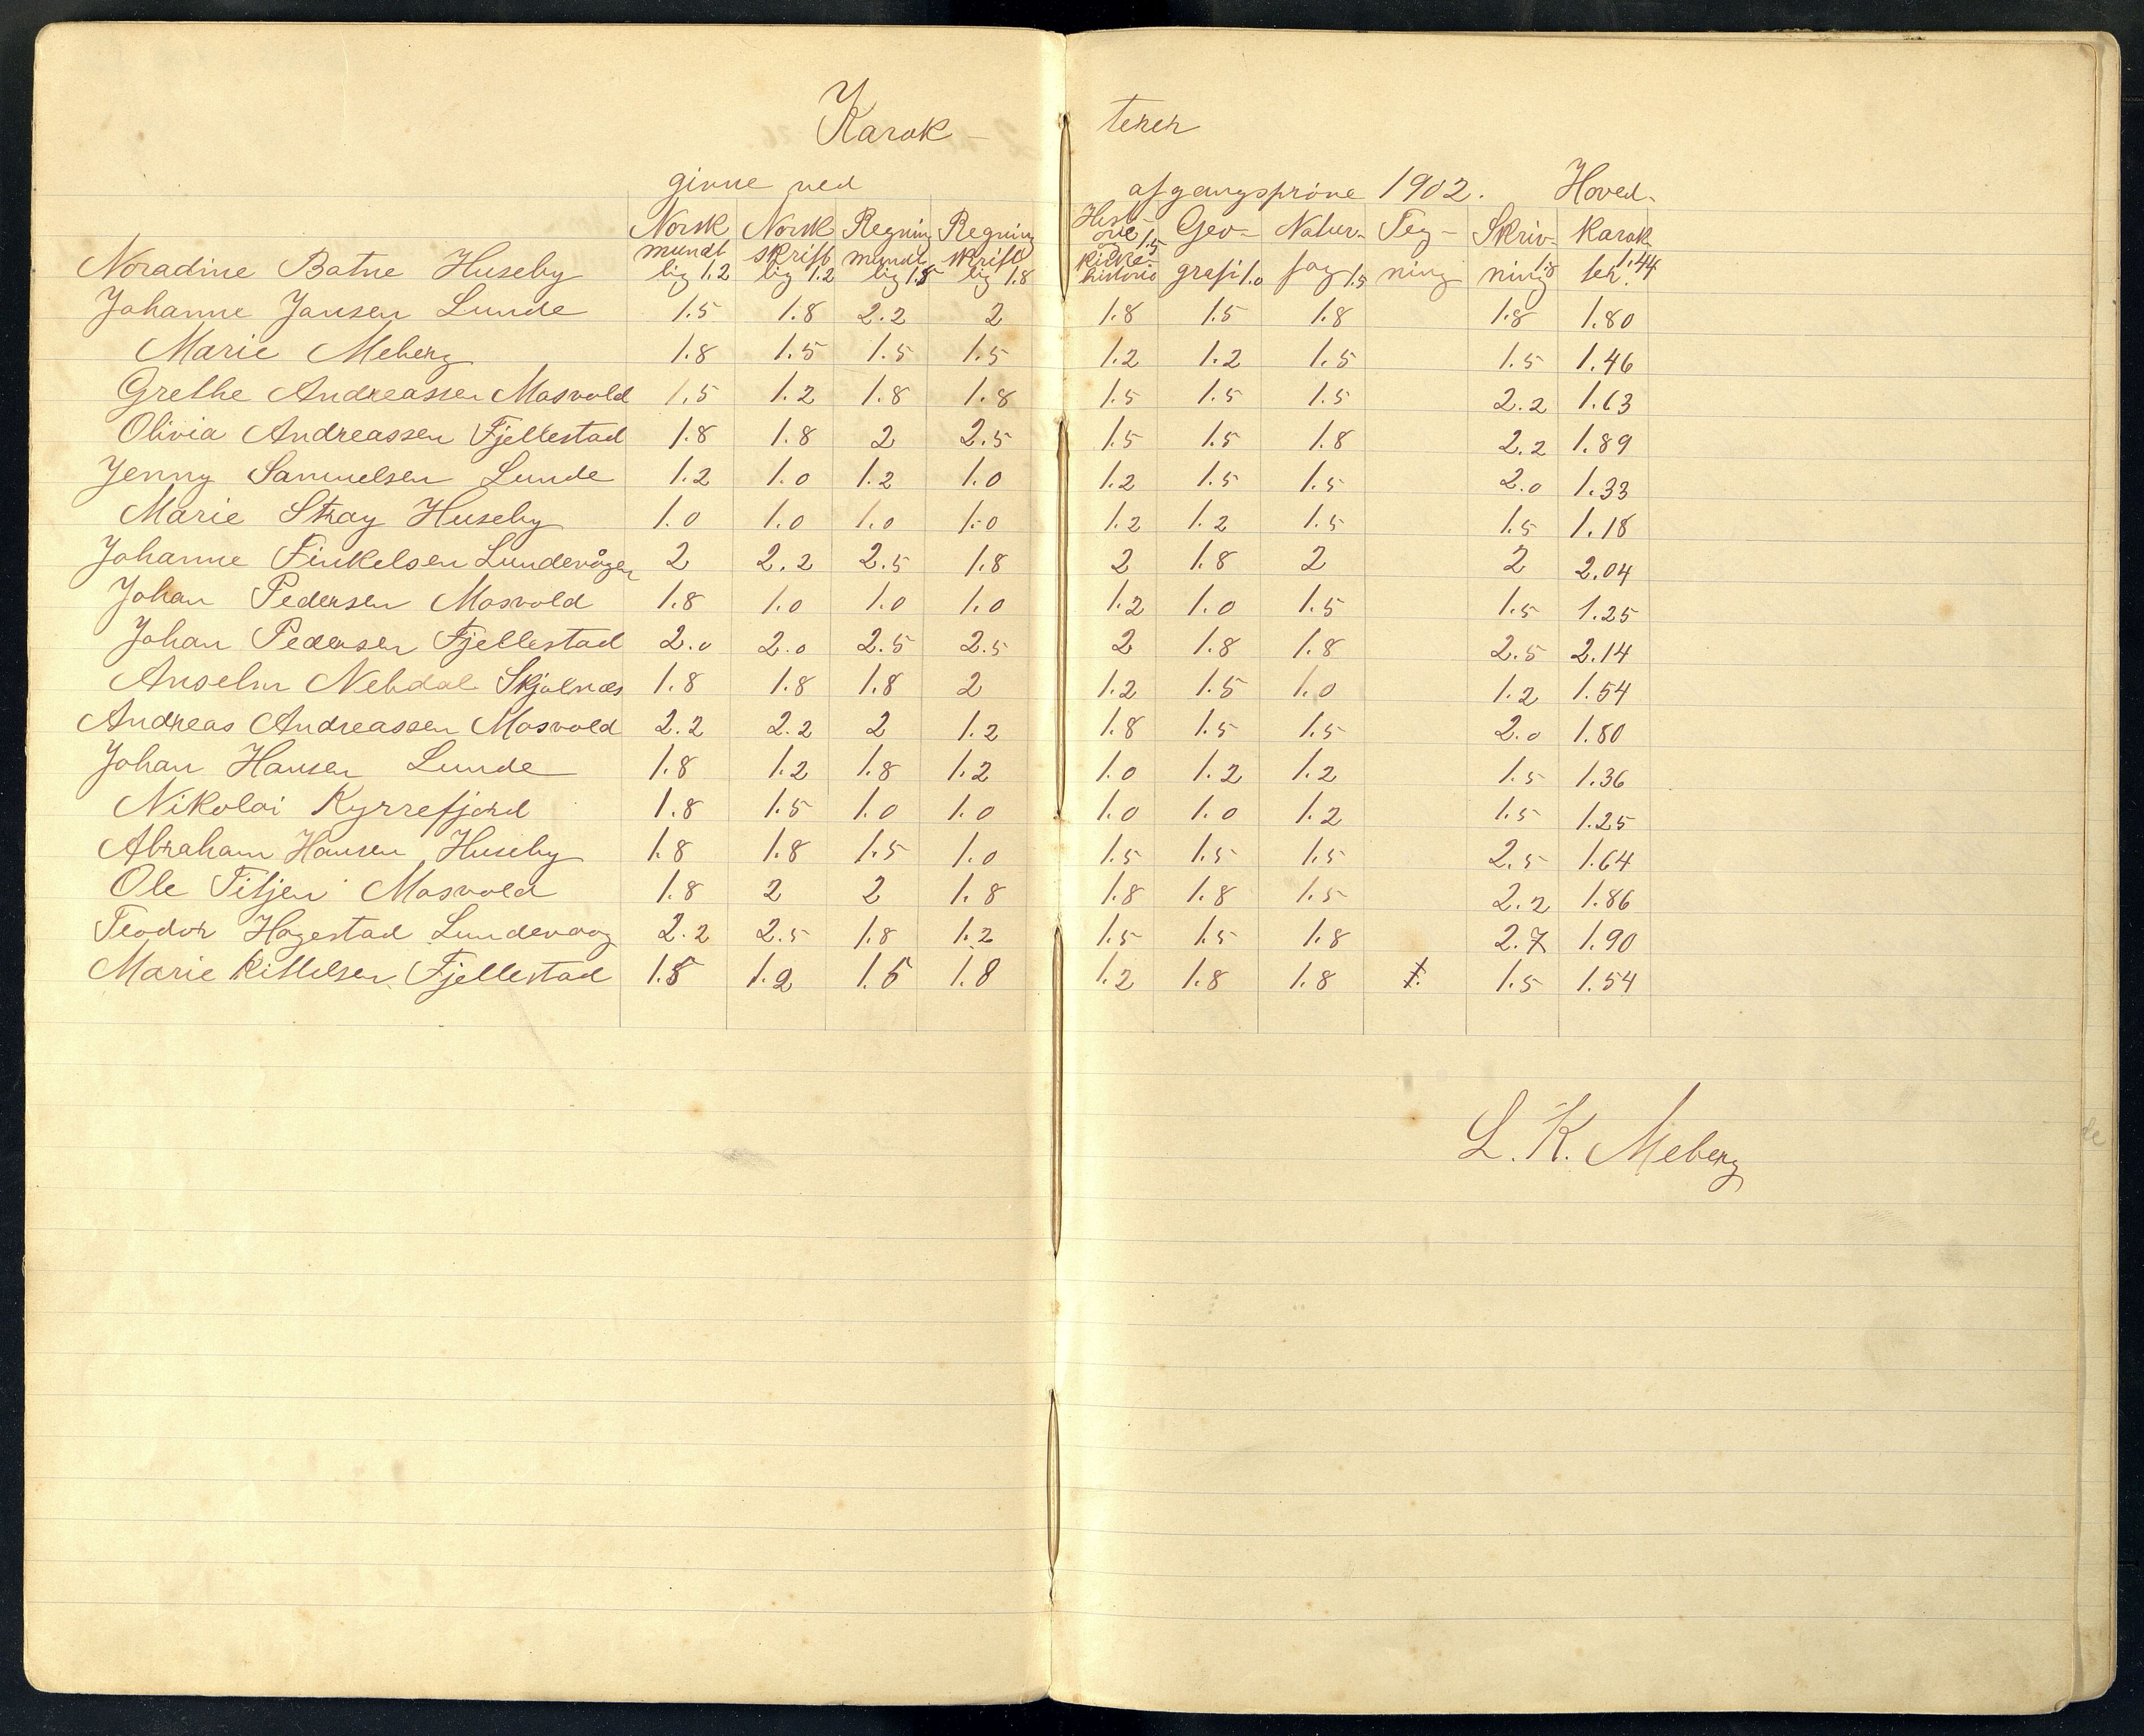 Karak- terer
givne ved afgangspröve 1902. Hoved-
Norsk Norsk Regning Regning Histo- Geo- Natur- Teg- Skriv- Karak-
mundt skrift mundt skrift rie 1.5
Noradine Batne Huseby lig 1.2 lig 1.2 lig 1.8 lig 1.8 kirke-historie grafi 1.0 fag 1.5 ning ning 1.8 ter. 1.44
Johanne Jansen Lunde 1.5 1.8 2.2 2 1.8 1.5 1.8 1.8 1.80
Marie Meberg 1.8 1.5 1.5 1.5 1.2 1.2 1.5 1.5 1.46
Grethe Andreassen Mosvold 1.5 1.2 1.8 1.8 1.5 1.5 1.5 2.2 1.63
Olivia Andreassen Fjellestad 1.8 1.8 2 2.5 1.5 1.5 1.8 2.2 1.89
Jenny Samuelsen Lunde 1.2 1.0 1.2 1.0 1.2 1.5 1.5 2.0 1.33
Marie Stray Huseby 1.0 1.0 1.0 1.0 1.2 1.2 1.5 1.5 1.18
Johanne Finkelsen Lundevågen 2 2.2 2.5 1.8 2 1.8 2 2 2.04
Johan Pedersen Mosvold 1.8 1.0 1.0 1.0 1.2 1.0 1.5 1.5 1.25
Johan Pedersen Fjellestad 2.0 2.0 2.5 2.5 2 1.8 1.8 2.5 2.14
Anselm Nebdal Skjolnæs 1.8 1.8 1.8 2 1.2 1.5 1.0 1.2 1.54
Andreas Andreassen Mosvold 2.2 2.2 2 1.2 1.8 1.5 1.5 2.0 1.80
Johan Hansen Lunde 1.8 1.2 1.8 1.2 1.0 1.2 1.2 1.5 1.36
Nikolai Kyrrefjord 1.8 1.5 1.0 1.0 1.0 1.0 1.2 1.5 1.25
Abraham Hansen Huseby 1.8 1.8 1.5 1.0 1.5 1.5 1.5 2.5 1.64
Ole Titjen Mosvold 1.8 2 2 1.8 1.8 1.8 1.5 2.2 1.86
Teodor Hagestad Lundevaag 2.2 2.5 1.8 1.2 1.5 1.5 1.8 2.7 1.90
Marie Kittelsen Fjellestad 1.5 1.2 1.5 1.8 1.2 1.8 1.8 1.5 1.54
L. K. Meberg